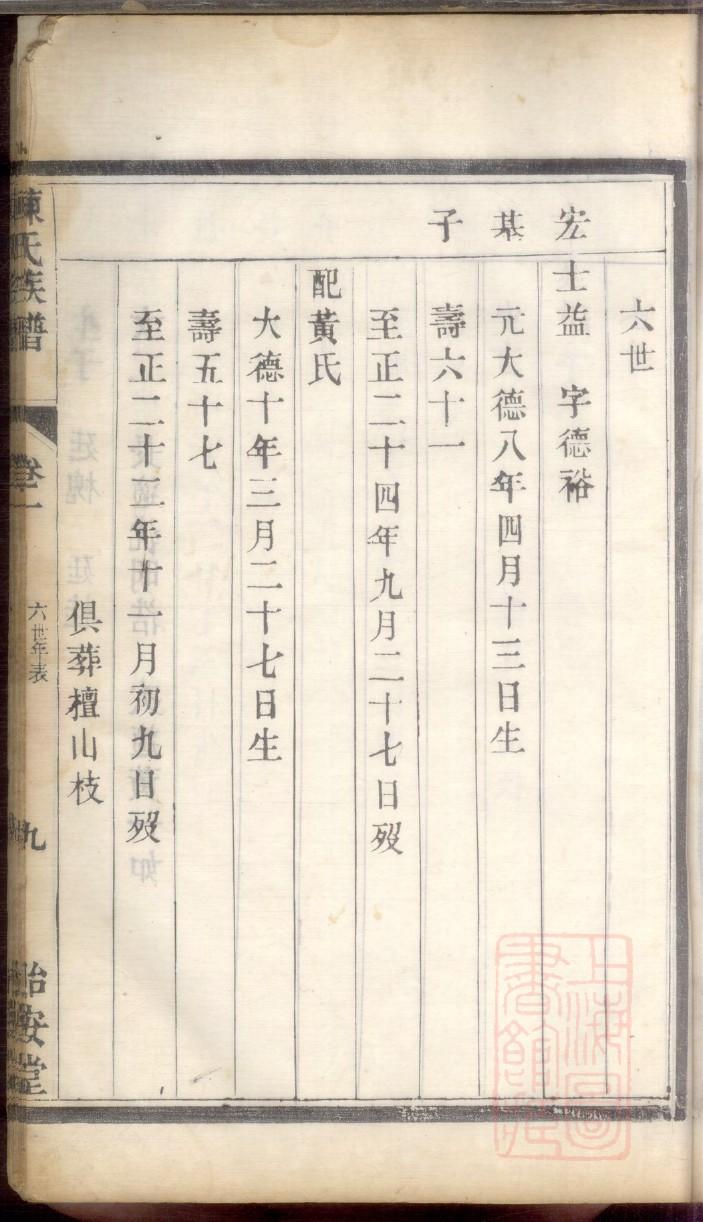 六世
宏
士益 字德裕
基
元大德八年四月十三日生
子
壽六十一
至正二十四年九月二十七日歿
配黃氏
大德十年三月二十七日生
壽五十七
至正二十二年十一月初九日歿
俱葬檀山枝
陳氏族譜 卷一 六世年表 九 怡安堂
上海圖書館藏